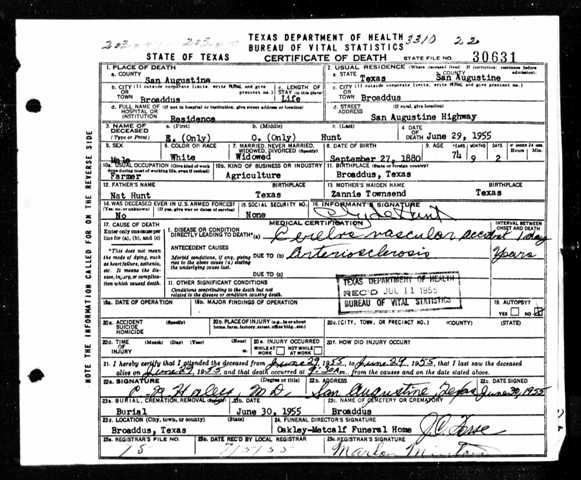 TEXAS DEPARTMENT OF HEALTH 3310 22
BUREAU OF VITAL STATISTICS
STATE OF TEXAS CERTIFICATE OF DEATH STATE FILE NO. 30631
1. PLACE OF DEATH 2. USUAL RESIDENCE (Where deceased lived. If institution: residence before admission).
a. COUNTY San Augustine a. STATE Texas b. COUNTY San Augustine
b. CITY OR TOWN Broaddus c. LENGTH OF STAY Life c. CITY OR TOWN Broaddus
d. FULL NAME OF HOSPITAL OR INSTITUTION Residence d. STREET ADDRESS San Augustine Highway
3. NAME OF DECEASED (Type or Print) a. (First) E. (Only) b. (Middle) O. (Only) c. (Last) Hunt 4. DATE OF DEATH June 29, 1955
5. SEX Male 6. COLOR OR RACE White 7. MARRIED, NEVER MARRIED, WIDOWED, DIVORCED (Specify) Widowed 8. DATE OF BIRTH September 27, 1880 9. AGE YEARS 74 MONTHS 9 DAYS 2
10a. USUAL OCCUPATION Farmer 10b. KIND OF BUSINESS OR INDUSTRY Agriculture 11. BIRTHPLACE (State or foreign country) Broaddus, Texas
12. FATHER'S NAME BIRTHPLACE 13. MOTHER'S MAIDEN NAME BIRTHPLACE
Nat Hunt Texas Zannie Townsend Texas
14. WAS DECEASED EVER IN U.S. ARMED FORCES? No 15. SOCIAL SECURITY NO. None 16. INFORMANT'S SIGNATURE Clyde Hunt
17. CAUSE OF DEATH MEDICAL CERTIFICATION INTERVAL BETWEEN ONSET AND DEATH
Enter only one cause per line for (a), (b), and (c) I. DISEASE OR CONDITION DIRECTLY LEADING TO DEATH* (a) vascular accident 1 day
ANTECEDENT CAUSES
Morbid conditions, if any, giving rise to the above cause (a) stating the underlying cause last. DUE TO (b) Arteriosclerosis Years
*This does not mean the mode of dying, such as heart failure, asthenia, etc. It means the disease, injury, or complication which caused death.
DUE TO (c)
II. OTHER SIGNIFICANT CONDITIONS
Conditions contributing to the death but not related to the disease or condition causing death.
TEXAS DEPARTMENT OF HEALTH
REC'D JUL 11 1955
BUREAU OF VITAL STATISTICS
18a. DATE OF OPERATION 18b. MAJOR FINDINGS OF OPERATION 19. AUTOPSY? YES NO
20a. ACCIDENT SUICIDE HOMICIDE (Specify) 20b. PLACE OF INJURY 20c. (CITY, TOWN, OR PRECINCT NO.) (COUNTY) (STATE)
20d. TIME OF INJURY (Month) (Day) (Year) (Hour) 20e. INJURY OCCURRED WHILE AT WORK NOT WHILE AT WORK 20f. HOW DID INJURY OCCUR?
21. I hereby certify that I attended the deceased from June 29 1955, to June 29, 1955, that I last saw the deceased
alive on June 29, 1955 and that death occurred at m., from the causes and on the date stated above.
22a. SIGNATURE (Degree or title) 22b. ADDRESS 22c. DATE SIGNED
Haley M.D. San Augustine, Texas June 30, 1955
23a. BURIAL, CREMATION, REMOVAL 23b. DATE 23c. NAME OF CEMETERY OR CREMATORY
Burial June 30, 1955 Broaddus
23d. LOCATION (City, town, or county) (State) 24. FUNERAL DIRECTOR'S SIGNATURE
Broaddus, Texas Oakley-Metcalf Funeral Home
25a. REGISTRAR'S FILE NO. 25b. DATE REC'D BY LOCAL REGISTRAR 25c. REGISTRAR'S SIGNATURE
15
NOTE THE INFORMATION CALLED FOR ON THE REVERSE SIDE